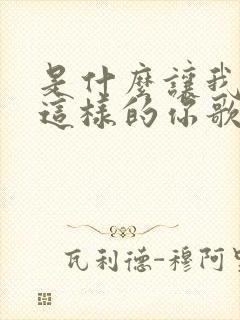 是什麼讓我
這樣的你歌
瓦利德-穆阿